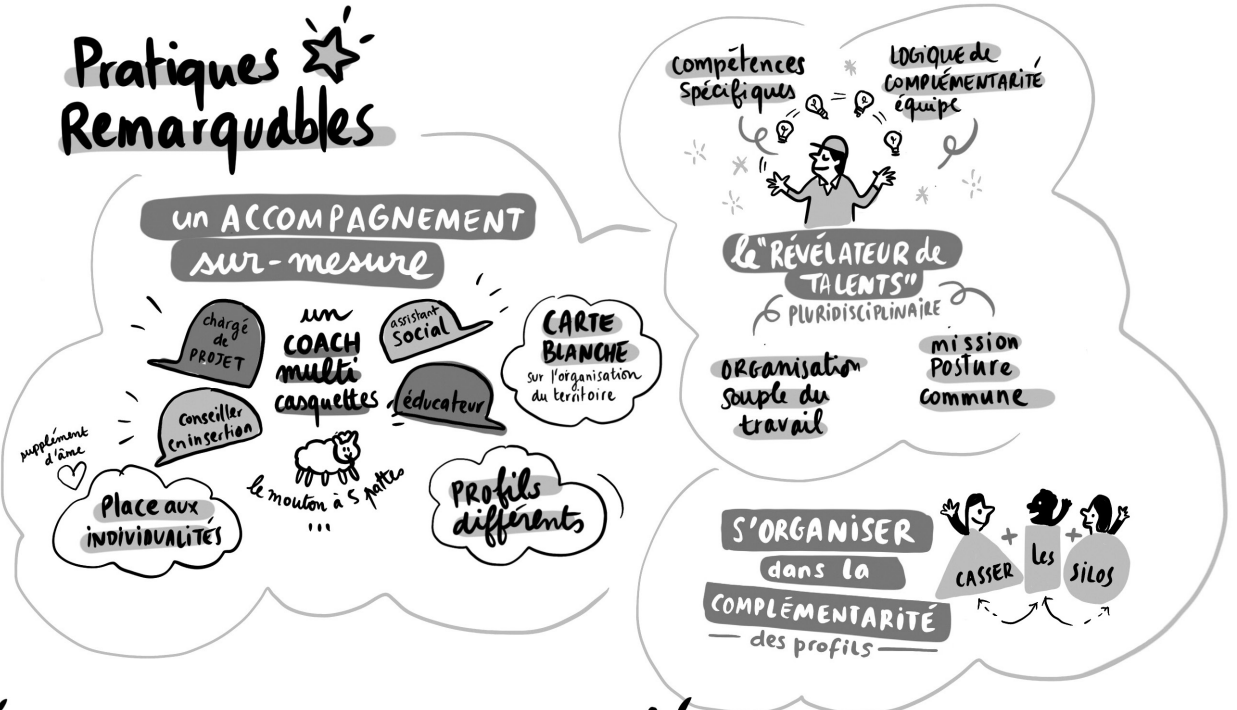 Pratiques
Remarquables
un ACCOMPAGNEMENT
sur-mesure
chargé
de
PROJET
un
COACH
multi
casquettes
assistant
social
éducateur
conseiller
en insertion
CARTE
BLANCHE
sur l'organisation
du territoire
supplément
d'âme
Place aux
INDIVIDUALITÉS
le mouton à 5 pattes
...
PROfils
différents
compétences
spécifiques
LOGIQUE de
COMPLÉMENTARITÉ
équipe
le "RÉVÉLATEUR de
TALENTS"
PLURIDISCIPLINAIRE
ORGanisation
souple du
travail
mission
Posture
commune
S'ORGANISER
dans la
COMPLÉMENTARITÉ
des profils
CASSER + les + SILOS